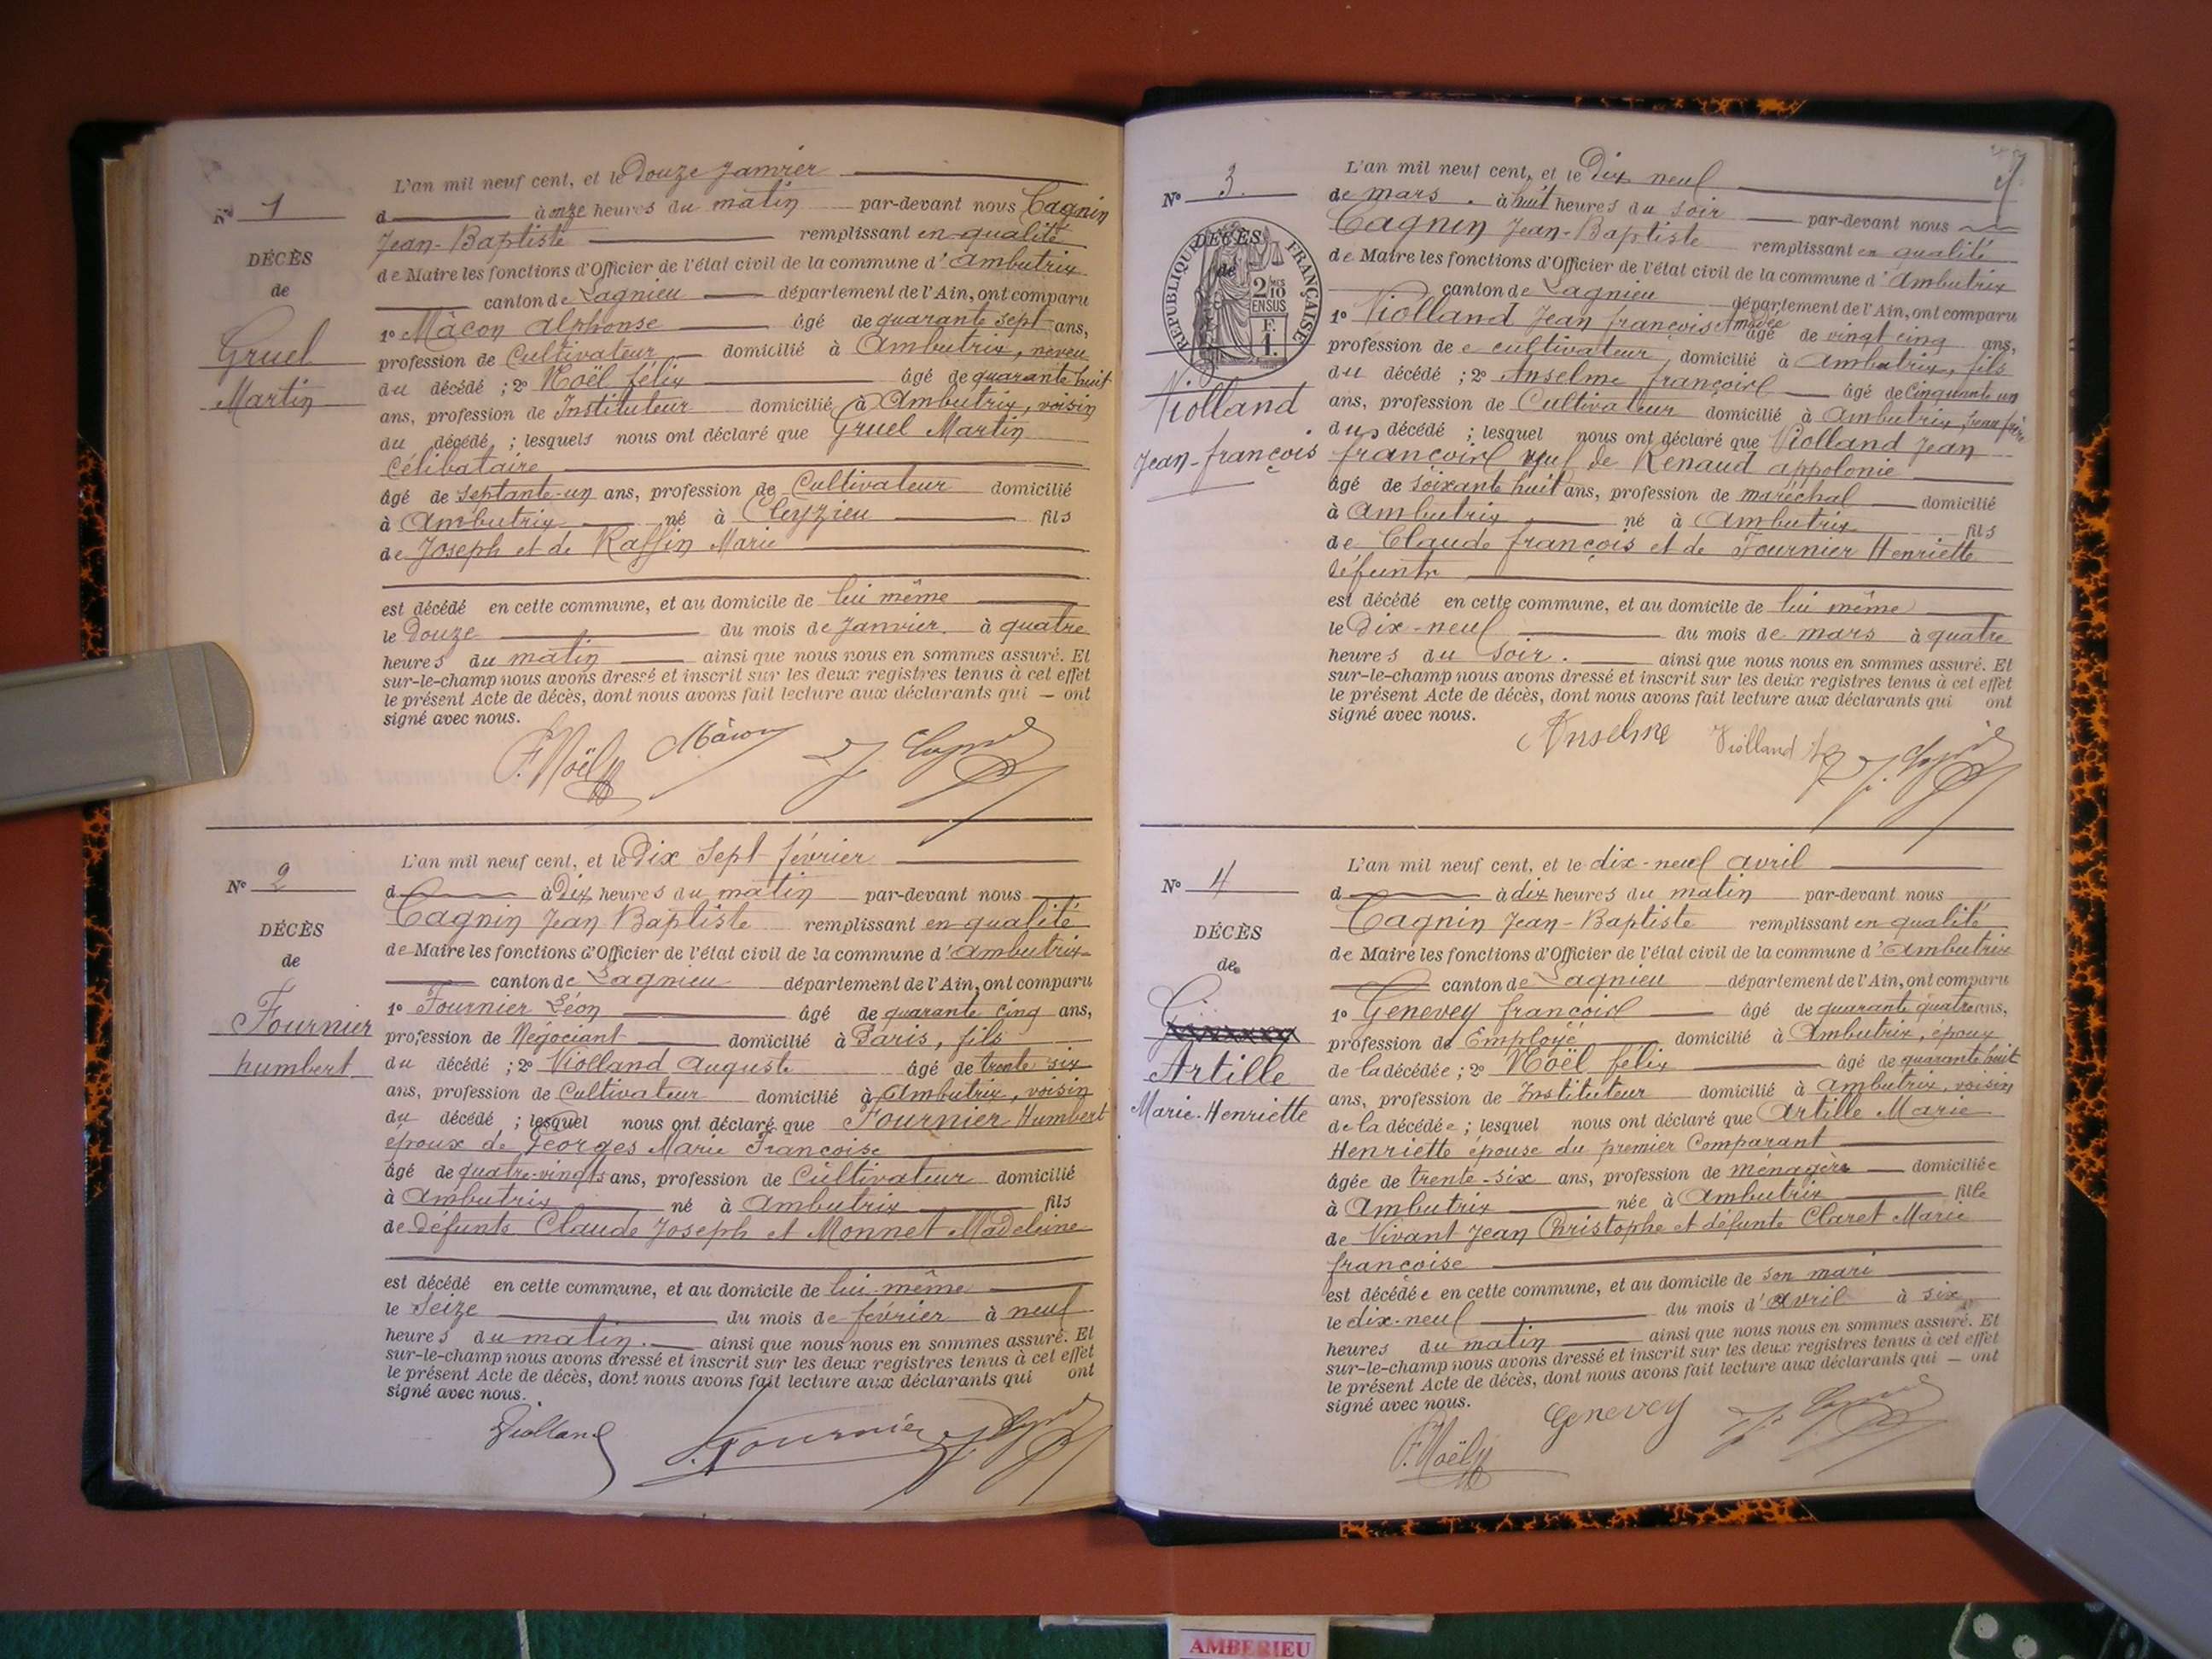 L'an mil neuf cent, et le Douze Janvier
N° 1
d à onze heures du matin par-devant nous Cagnin
Jean-Baptiste remplissant en qualité
DÉCÈS
de Maire les fonctions d'Officier de l'état civil de la commune d'Ambutrix
de
canton de Lagnieu département de l'Ain, ont comparu
1° Mâcon Alphonse âgé de quarante sept ans,
Gruel
profession de Cultivateur domicilié à Ambutrix, neveu
Martin
du décédé ; 2° Noël félix âgé de quarante huit
ans, profession de Instituteur domicilié à Ambutrix, voisin
du décédé ; lesquels nous ont déclaré que Gruel Martin
Célibataire
âgé de septante-un ans, profession de Cultivateur domicilié
à Ambutrix né à Cleyzieu fils
de Joseph et de Raffin Marie
est décédé en cette commune, et au domicile de lui même
le Douze du mois de Janvier à quatre
heures du matin ainsi que nous nous en sommes assuré. Et
sur-le-champ nous avons dressé et inscrit sur les deux registres tenus à cet effet
le présent Acte de décès, dont nous avons fait lecture aux déclarants qui — ont
signé avec nous.
F. Noël Mâcon J. Cagnin
L'an mil neuf cent, et le Dix Sept février
N° 2
d à Dix heures du matin par-devant nous
Cagnin Jean Baptiste remplissant en qualité
DÉCÈS
de Maire les fonctions d'Officier de l'état civil de la commune d'Ambutrix
de
canton de Lagnieu département de l'Ain, ont comparu
1° Fournier Léon âgé de quarante cinq ans,
Fournier
profession de Négociant domicilié à Paris, fils
humbert
du décédé ; 2° Violland Auguste âgé de trente six
ans, profession de Cultivateur domicilié à Ambutrix, voisin
du décédé ; lesquel nous ont déclaré que Fournier Humbert
époux de Georges Marie Françoise
âgé de quatre-vingts ans, profession de Cultivateur domicilié
à Ambutrix né à Ambutrix fils
de défunts Claude Joseph et Monnet Madeleine
est décédé en cette commune, et au domicile de lui-même
le Seize du mois de février à neuf
heures du matin. ainsi que nous nous en sommes assuré. Et
sur-le-champ nous avons dressé et inscrit sur les deux registres tenus à cet effet
le présent Acte de décès, dont nous avons fait lecture aux déclarants qui ont
signé avec nous.
Violland Fournier J. Cagnin
L'an mil neuf cent, et le Dix neuf
N° 3.
de mars. à huit heures du soir par-devant nous
Cagnin Jean-Baptiste remplissant en qualité
DÉCÈS
de
RÉPUBLIQUE FRANÇAISE
2 MES
10
EN SUS
F.
1.
de Maire les fonctions d'Officier de l'état civil de la commune d'Ambutrix
canton de Lagnieu département de l'Ain, ont comparu
1° Violland Jean françois Amédée âgé de vingt cinq ans,
profession de cultivateur, domicilié à Ambutrix, fils
Violland
du décédé ; 2° Anselme françois âgé de Cinquante un
ans, profession de Cultivateur domicilié à Ambutrix, beau frère
Jean-françois
du décédé ; lesquel nous ont déclaré que Violland Jean
françois veuf de Renaud appolonie
âgé de soixante huit ans, profession de maréchal domicilié
à Ambutrix né à Ambutrix fils
de Claude françois et de Fournier Henriette
défunts
est décédé en cette commune, et au domicile de lui même
le Dix-neuf du mois de mars à quatre
heures du soir. ainsi que nous nous en sommes assuré. Et
sur-le-champ nous avons dressé et inscrit sur les deux registres tenus à cet effet
le présent Acte de décès, dont nous avons fait lecture aux déclarants qui ont
signé avec nous.
Anselme Violland J. Cagnin
L'an mil neuf cent, et le dix-neuf avril
N° 4
d à dix heures du matin par-devant nous
Cagnin Jean-Baptiste remplissant en qualité
DÉCÈS
de Maire les fonctions d'Officier de l'état civil de la commune d'Ambutrix
de
canton de Lagnieu département de l'Ain, ont comparu
1° Genevey françois âgé de quarante quatre ans,
profession de Employé domicilié à Ambutrix, époux
Artille
de la décédée ; 2° Noël félix âgé de quarante huit
Marie-Henriette
ans, profession de Instituteur domicilié à Ambutrix, voisin
de la décédée ; lesquel nous ont déclaré que Artille Marie
Henriette épouse du premier Comparant
âgée de trente-six ans, profession de ménagère domiciliée
à Ambutrix née à Ambutrix fille
de Vivant Jean Christophe et défunte Claret Marie
françoise
est décédée en cette commune, et au domicile de son mari
le dix-neuf du mois d'avril à six
heures du matin ainsi que nous nous en sommes assuré. Et
sur-le-champ nous avons dressé et inscrit sur les deux registres tenus à cet effet
le présent Acte de décès, dont nous avons fait lecture aux déclarants qui — ont
signé avec nous.
F. Noël Genevey J. Cagnin
AMBERIEU